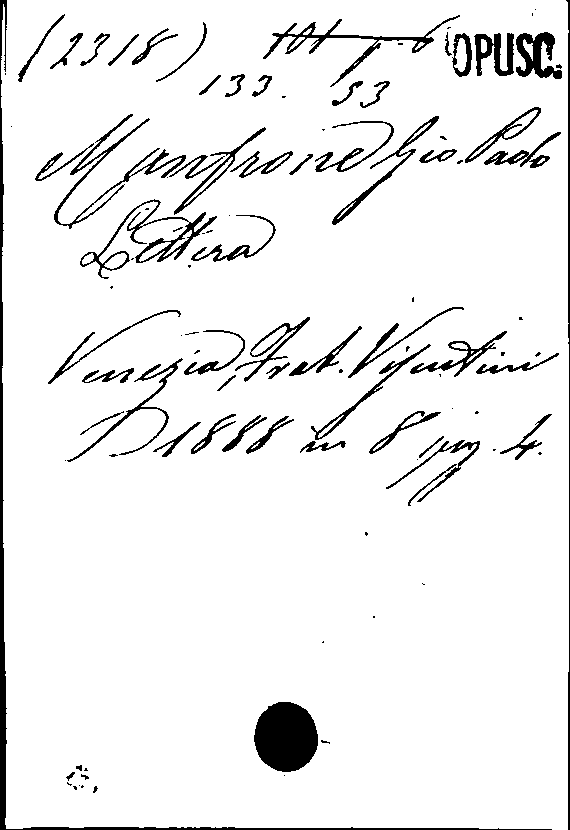 (2318) OPUSC.
133. 53
Manfrone Gio. Paolo
Lettera
Venezia, Frat. Visentini
1888 in 8 pag. 4.